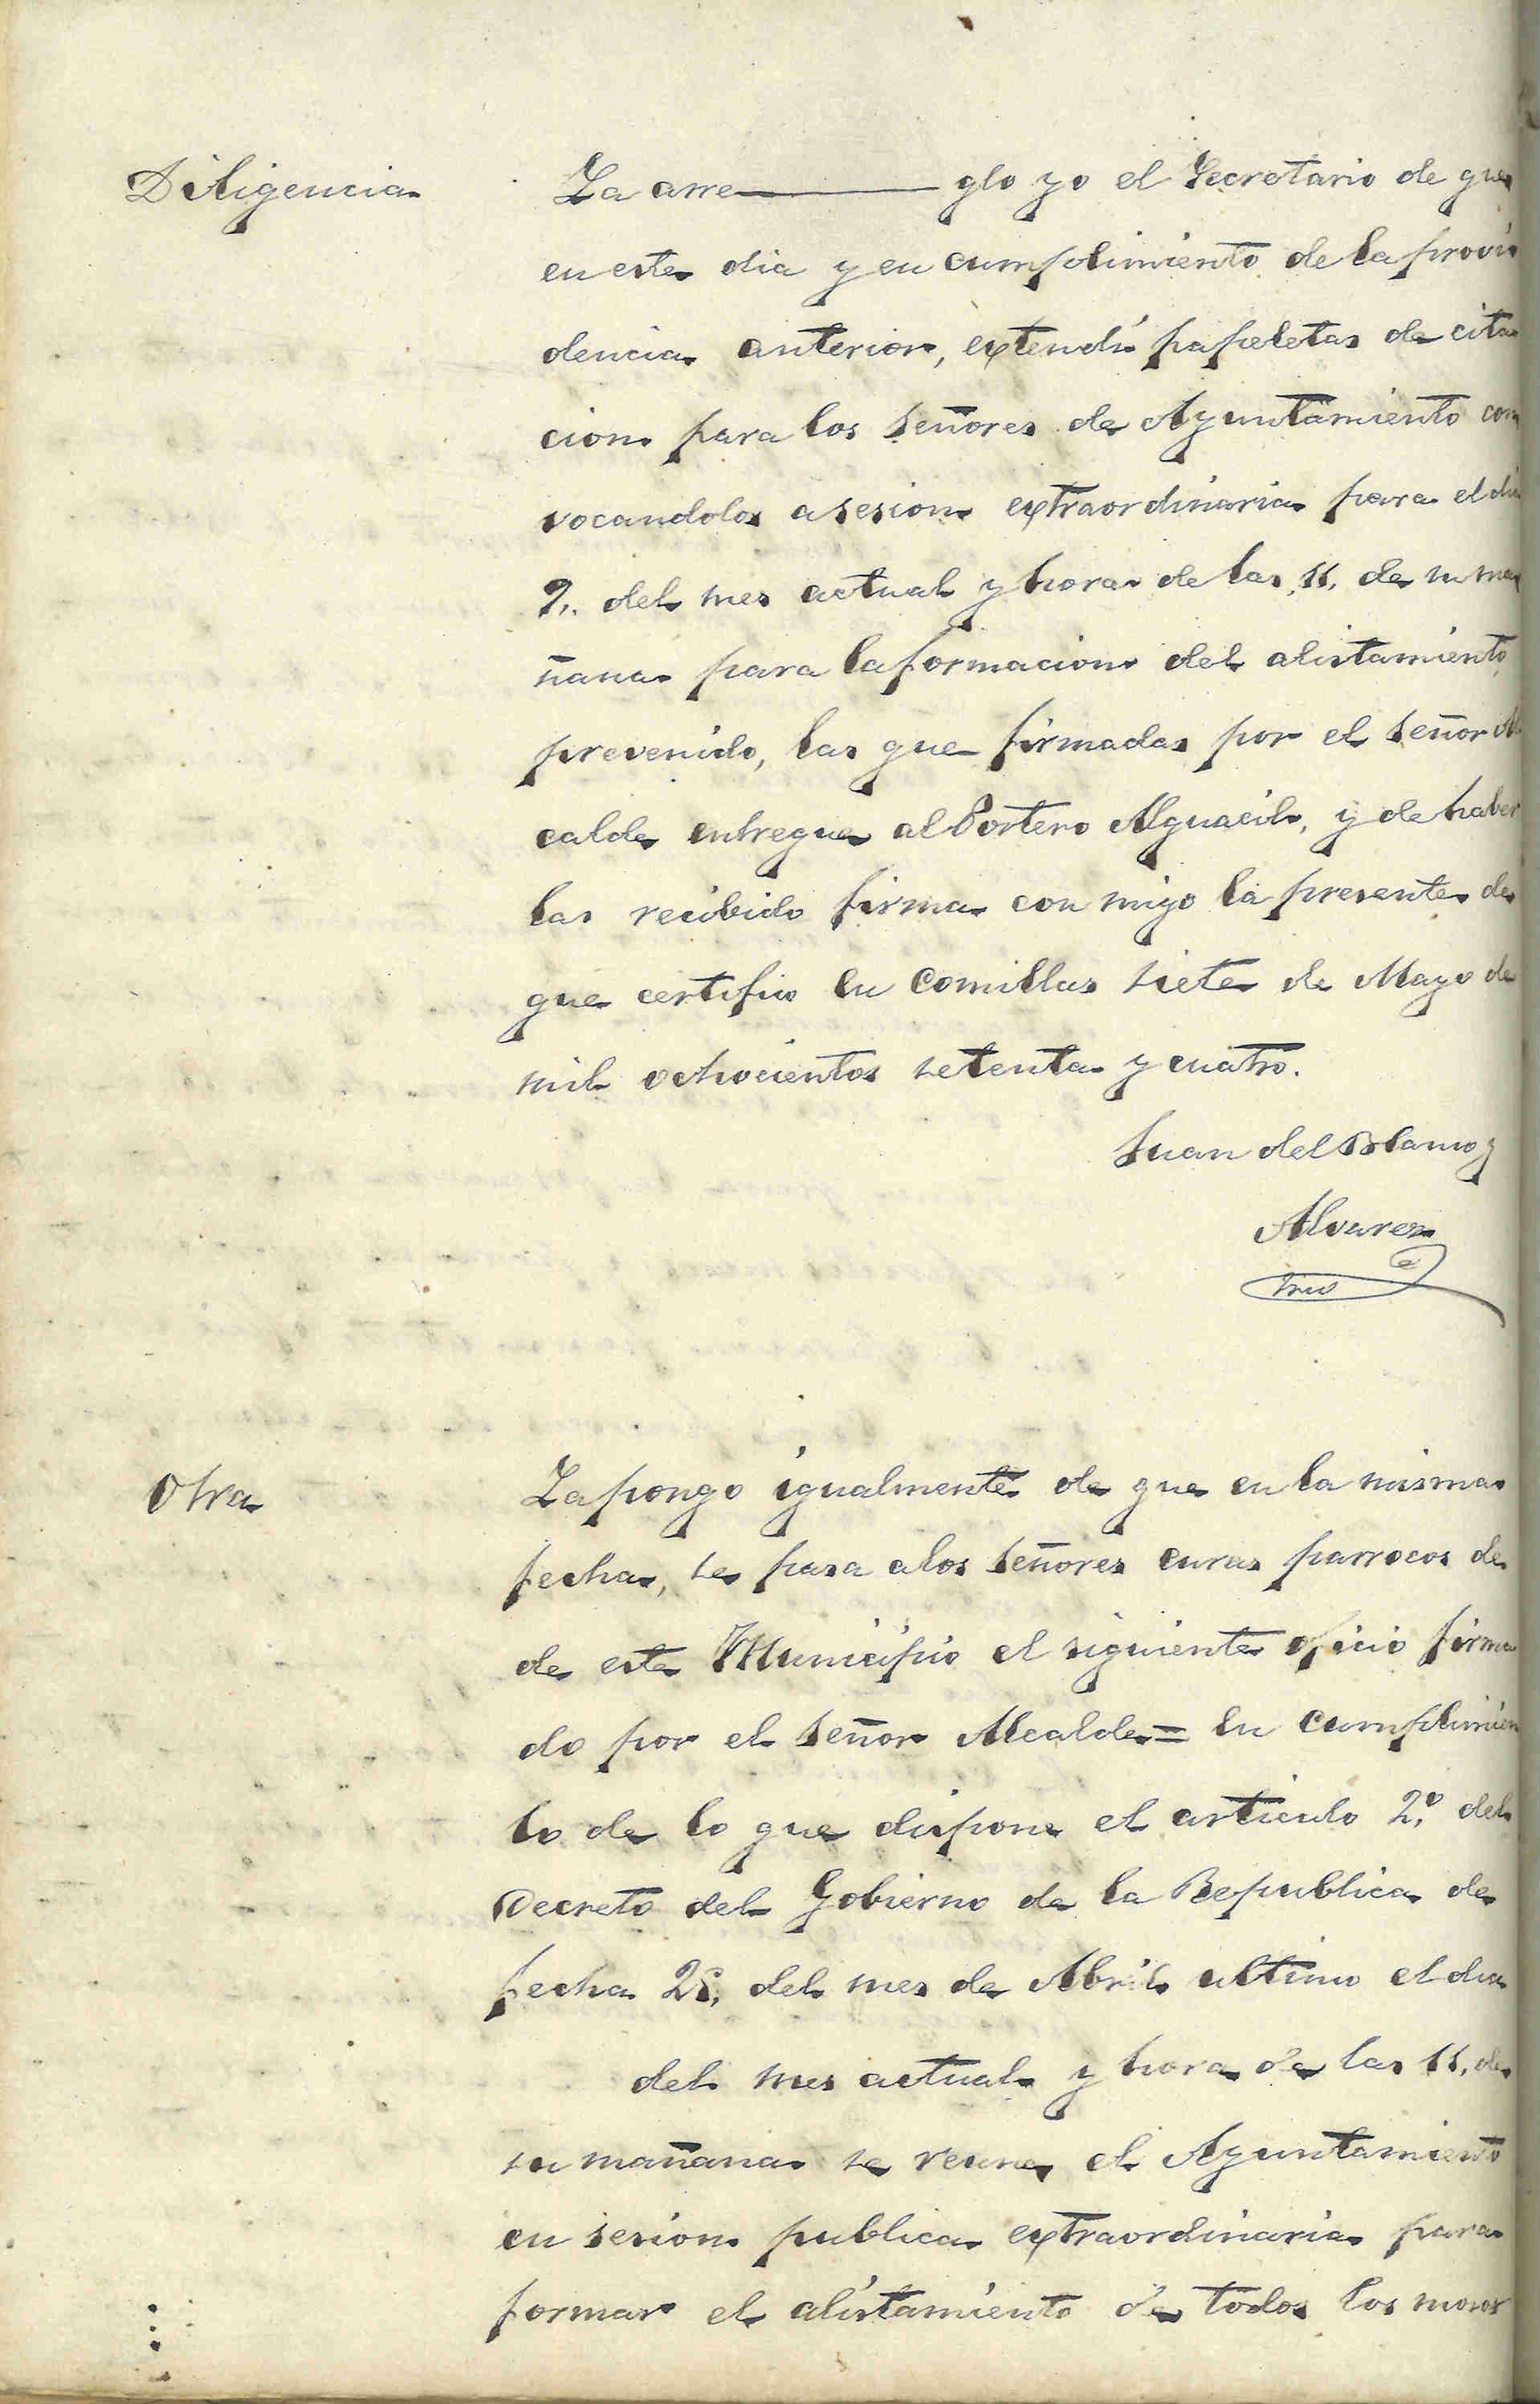 Diligencia
La arre glo yo el Secretario de que
en este dia y en cumplimiento de la provi
dencia anterior, extendí papeletas de cita
cion para los señores de Ayuntamiento con
vocandolos a sesion extraordinaria para el dia
9. del mes actual y hora de las 11. de su ma
ñana para la formacion del alistamiento
prevenido, las que firmadas por el señor Al
calde entregue al Portero Alguacil, y de haber
las recibido firma con migo la presente de
que certifico en Comillas siete de Mayo de
mil ochocientos setenta y cuatro.
Juan del Blanco y
Alvarez
Otra
La pongo igualmente de que en la misma
fecha, se pasa a los señores curas parrocos de
de este Municipio el siguiente oficio firma
do por el señor Alcalde= En cumplimien
to de lo que dispone el articulo 2.º del
Decreto del Gobierno de la Republica de
fecha del mes de Abril ultimo el dia
del mes actual y hora de las 11. de
su mañana se reune el Ayuntamiento
en sesion publica extraordinaria para
formar el alistamiento de todos los mozos